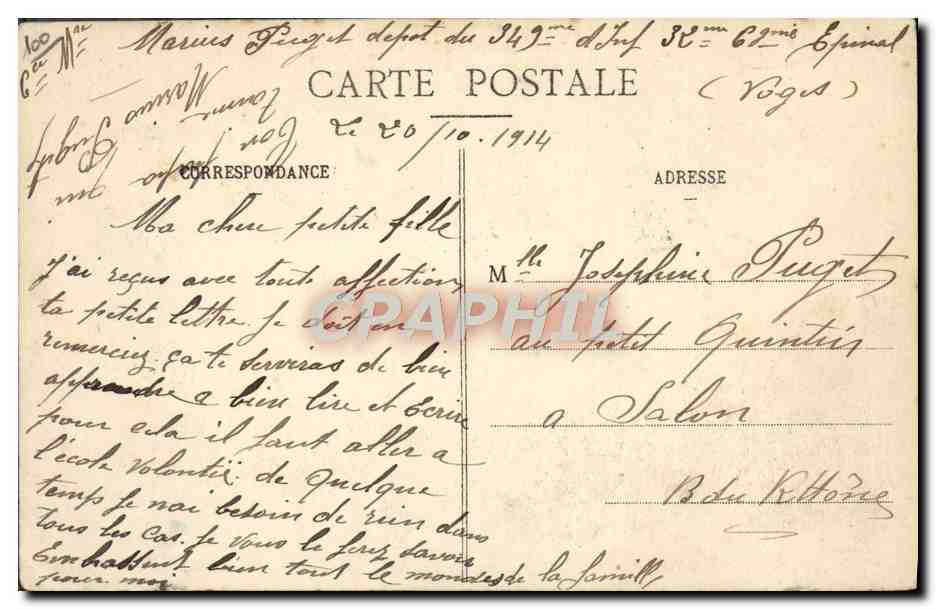 100
Marius Puget depot du 349me d'Inf 32me 6 Epinal
CARTE POSTALE
(Voges)
Le 20/10.1914
CORRESPONDANCE
ADRESSE
Ma chere petite fille
j'ai reçus avec toute affection
ta petite lettre. Je doit en
remerciez. ça te serviras de bien
apprendre a bien lire et Ecrire
pour cela il faut aller a
l'école volontié. de quelque
temps je nai besoin de rien dans
tous les cas. Je vous le ferez savoir
Embrassent bien tout le monde de la famille
pour moi
Ton papa qui
t'aime
Marius Puget
Mlle Josephine Puget
au petit Quintin
a Salon
B du Rhône
CPAPHIL